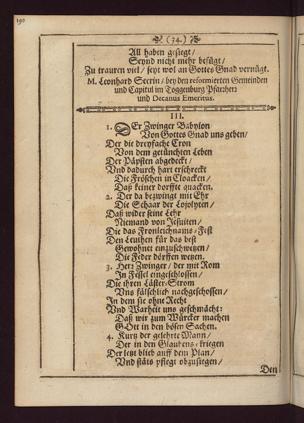 190
(34.)
All haben gesiegt/
Seynd nicht mehr besügt/
Zu trauren viel/ seyt wol an Gottes Gnad vernügt.
M. Leonhard Seerin/ bey den reformierten Gemeinden
und Capitul im Toggenburg Pfarrherr
und Decanus Emeritus.
III.
1. DEr Zwinger Babylon
Von Gottes Gnad uns geben/
Der die dreyfache Cron
Von dem getünchten Leben
Der Päpsten abgedeckt/
Und dadurch hart erschreckt
Die Fröschen in Cloacken/
Daß keiner dorffte quacken.
2. Der da bezwingt mit Ehr
Die Schaar der Lojolyten/
Daß wider seine Lehr
Niemand von Jesuiten/
Die das Fronleichnams-Fest
Den Leuthen für das best
Gewohnet einzuschwetzen/
Die Feder dörffen wetzen.
3. Herr Zwinger/ der mit Rom
In Fessel eingeschlossen/
Die ihren Läster-Strom
Uns fälschlich nachgeschossen/
In dem sie ohne Recht
Und Warheit uns geschmächt:
Daß wir zum Würcker machen
GOtt in den bösen Sachen.
4. Kurtz der gelehrte Mann/
Der in den Glaubens-kriegen
Der letzt blieb auff dem Plan/
Und stäts pflegt obzusiegen/
Den